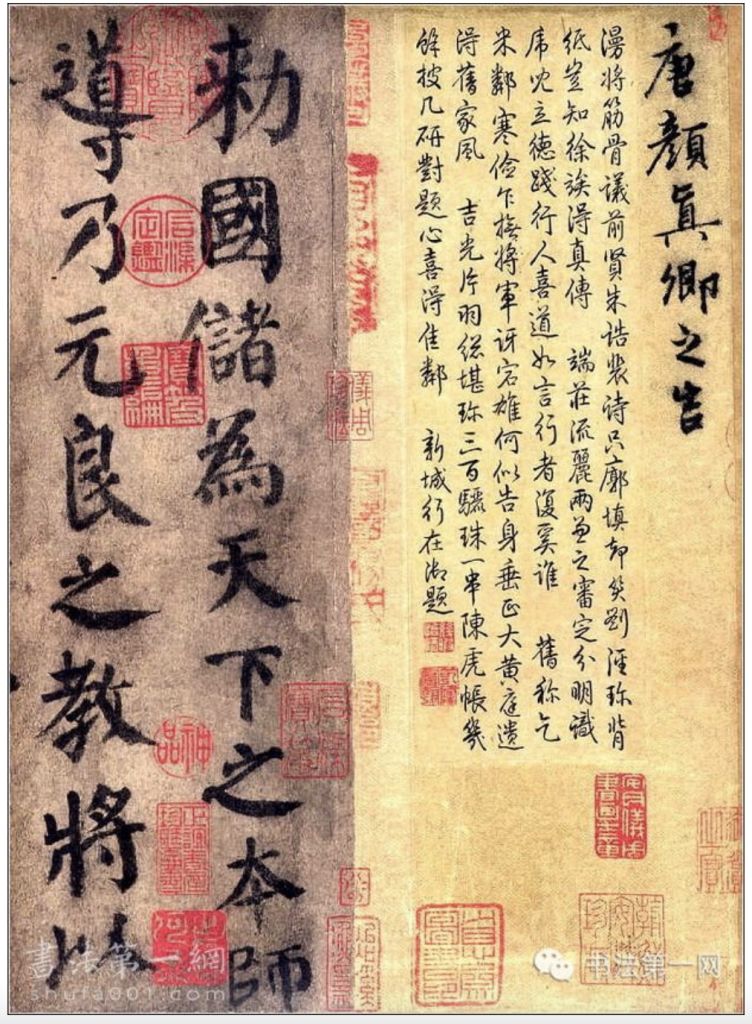 唐顏眞卿之告
漫將筋骨議前賢朱誥裴詩只廓填却笑劉涇珍背
紙豈知徐誒得真傳 端莊流麗兩兼之審定分明識
虎兒立德踐行人喜道如言行者復奚誰 舊稱乞
米鄰寒儉乍撫將軍訝宕雄何似告身垂正大黃庭遺
得舊家風 吉光片羽總堪珍三百驪珠一串陳虎帳幾
餘披几研對題心喜得佳鄰 新城行在御題
勑國儲為天下之本師
導乃元良之教將以
神品
書法第一網
shufa001.com
书法第一网